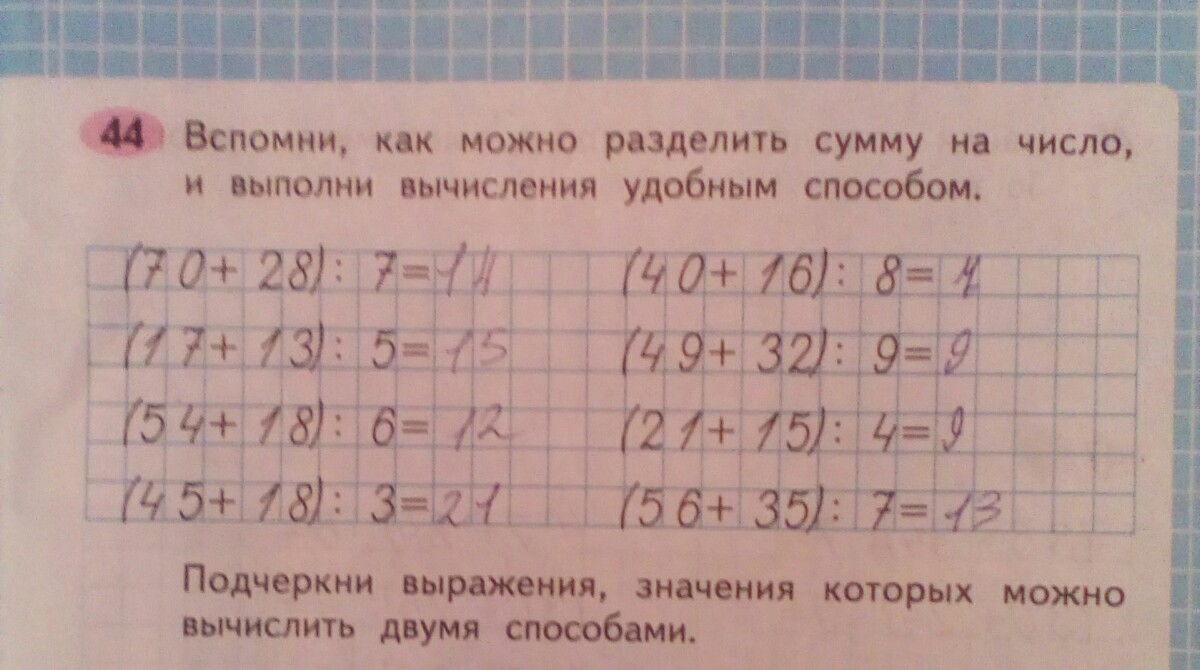 44 Вспомни, как можно разделить сумму на число,
и выполни вычисления удобным способом.
(70+ 28): 7=14 (40+ 16): 8=
(17+ 13): 5=15 (49+ 32): 9=9
(54+ 18): 6=12 (21+ 15): 4=9
(45+ 18): 3=21 (56+ 35): 7=13
Подчеркни выражения, значения которых можно
вычислить двумя способами.